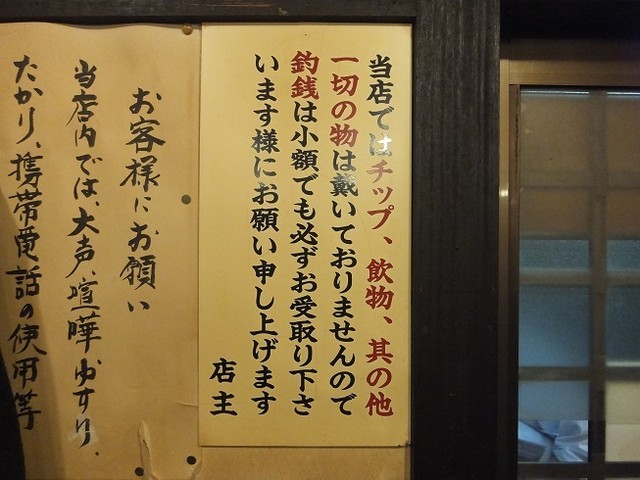 当店ではチップ、飲物、其の他
一切の物は戴いておりませんので
釣銭は小額でも必ずお受取り下さ
います様にお願い申し上げます
店主
お客様にお願い
当店内では、大声、喧嘩、ゆすり、
たかり、携帯電話の使用等